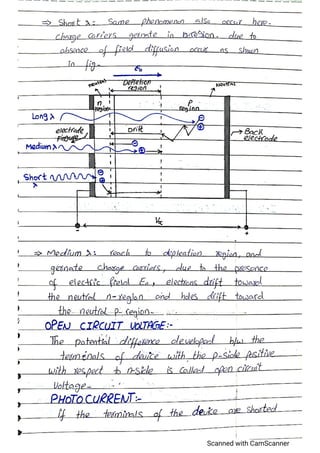 ⇒ Short λ: Same phenomenon also occur here.
charge carriers gernate in n-region. due to
absence of field diffusion occur as shown
in fig.
E₀
Neutral
Depletion
region
Neutral
n
region
P
region
Long λ
electrode
Drift
Back
electrode
Medium λ
Short
λ
⇒ Medium λ: reach to depleation region, and
gernate charge carriers, due to the presence
of electric field E₀, electrons drift toward
the neutral n-region and holes drift toward
the neutral p-region.
OPEN CIRCUIT VOLTAGE:-
The potential difference developed b/w the
terminals of device with the p-side positive
with respect to n-side is called open circuit
voltage.
PHOTO CURRENT:-
If the terminals of the device are shorted
Scanned with CamScanner